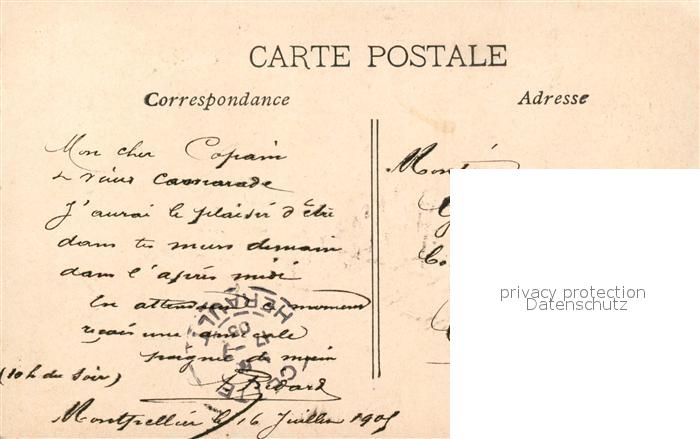 CARTE POSTALE
Correspondance
Adresse
Mon cher Copain
& vieux camarade
J'aurai le plaisir d'être
dans tes murs demain
dans l'après midi
En attendant ce moment
reçois une amicale
poignée de main
(10h du soir)
Bédard
Montpellier le 16 Juillet 1905
HERAULT
privacy protection
Datenschutz